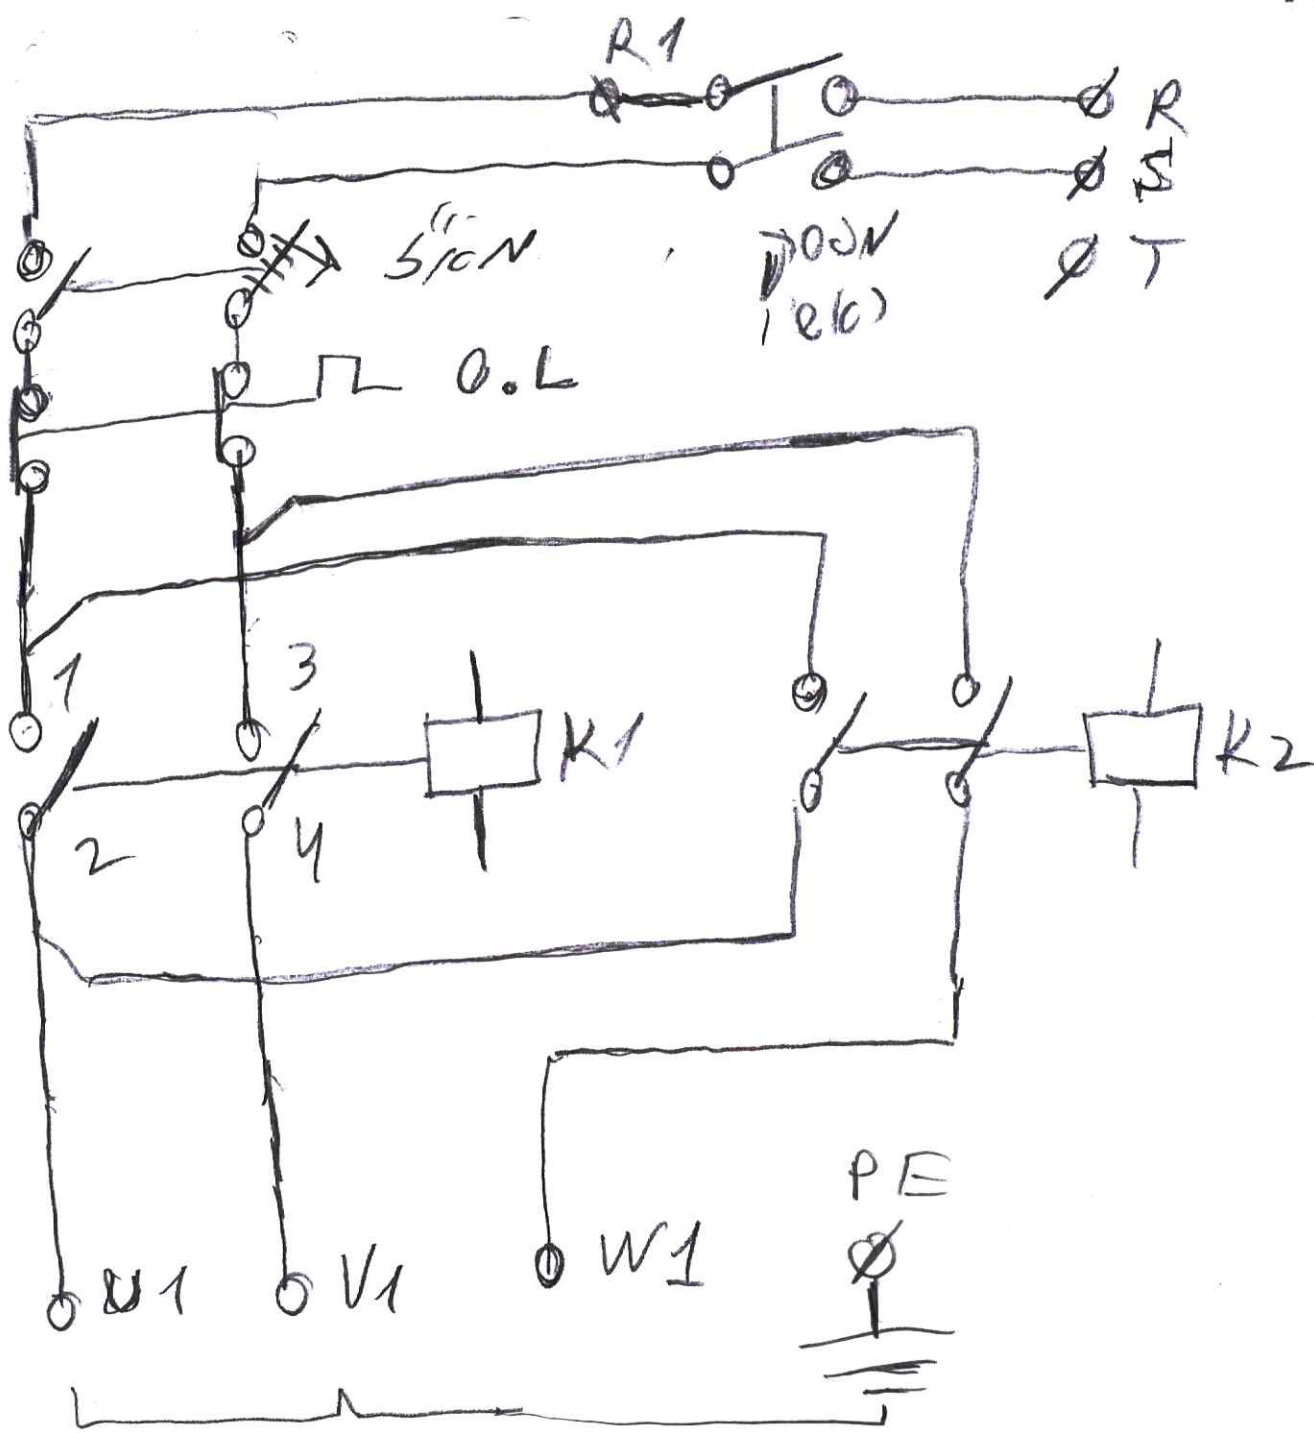 R1
R
S
T
O.L
1
3
K1
K2
2
4
PE
U1
V1
W1